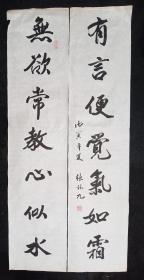 有言便覺氣如霜
丙寅年夏 張
無欲常教心似水